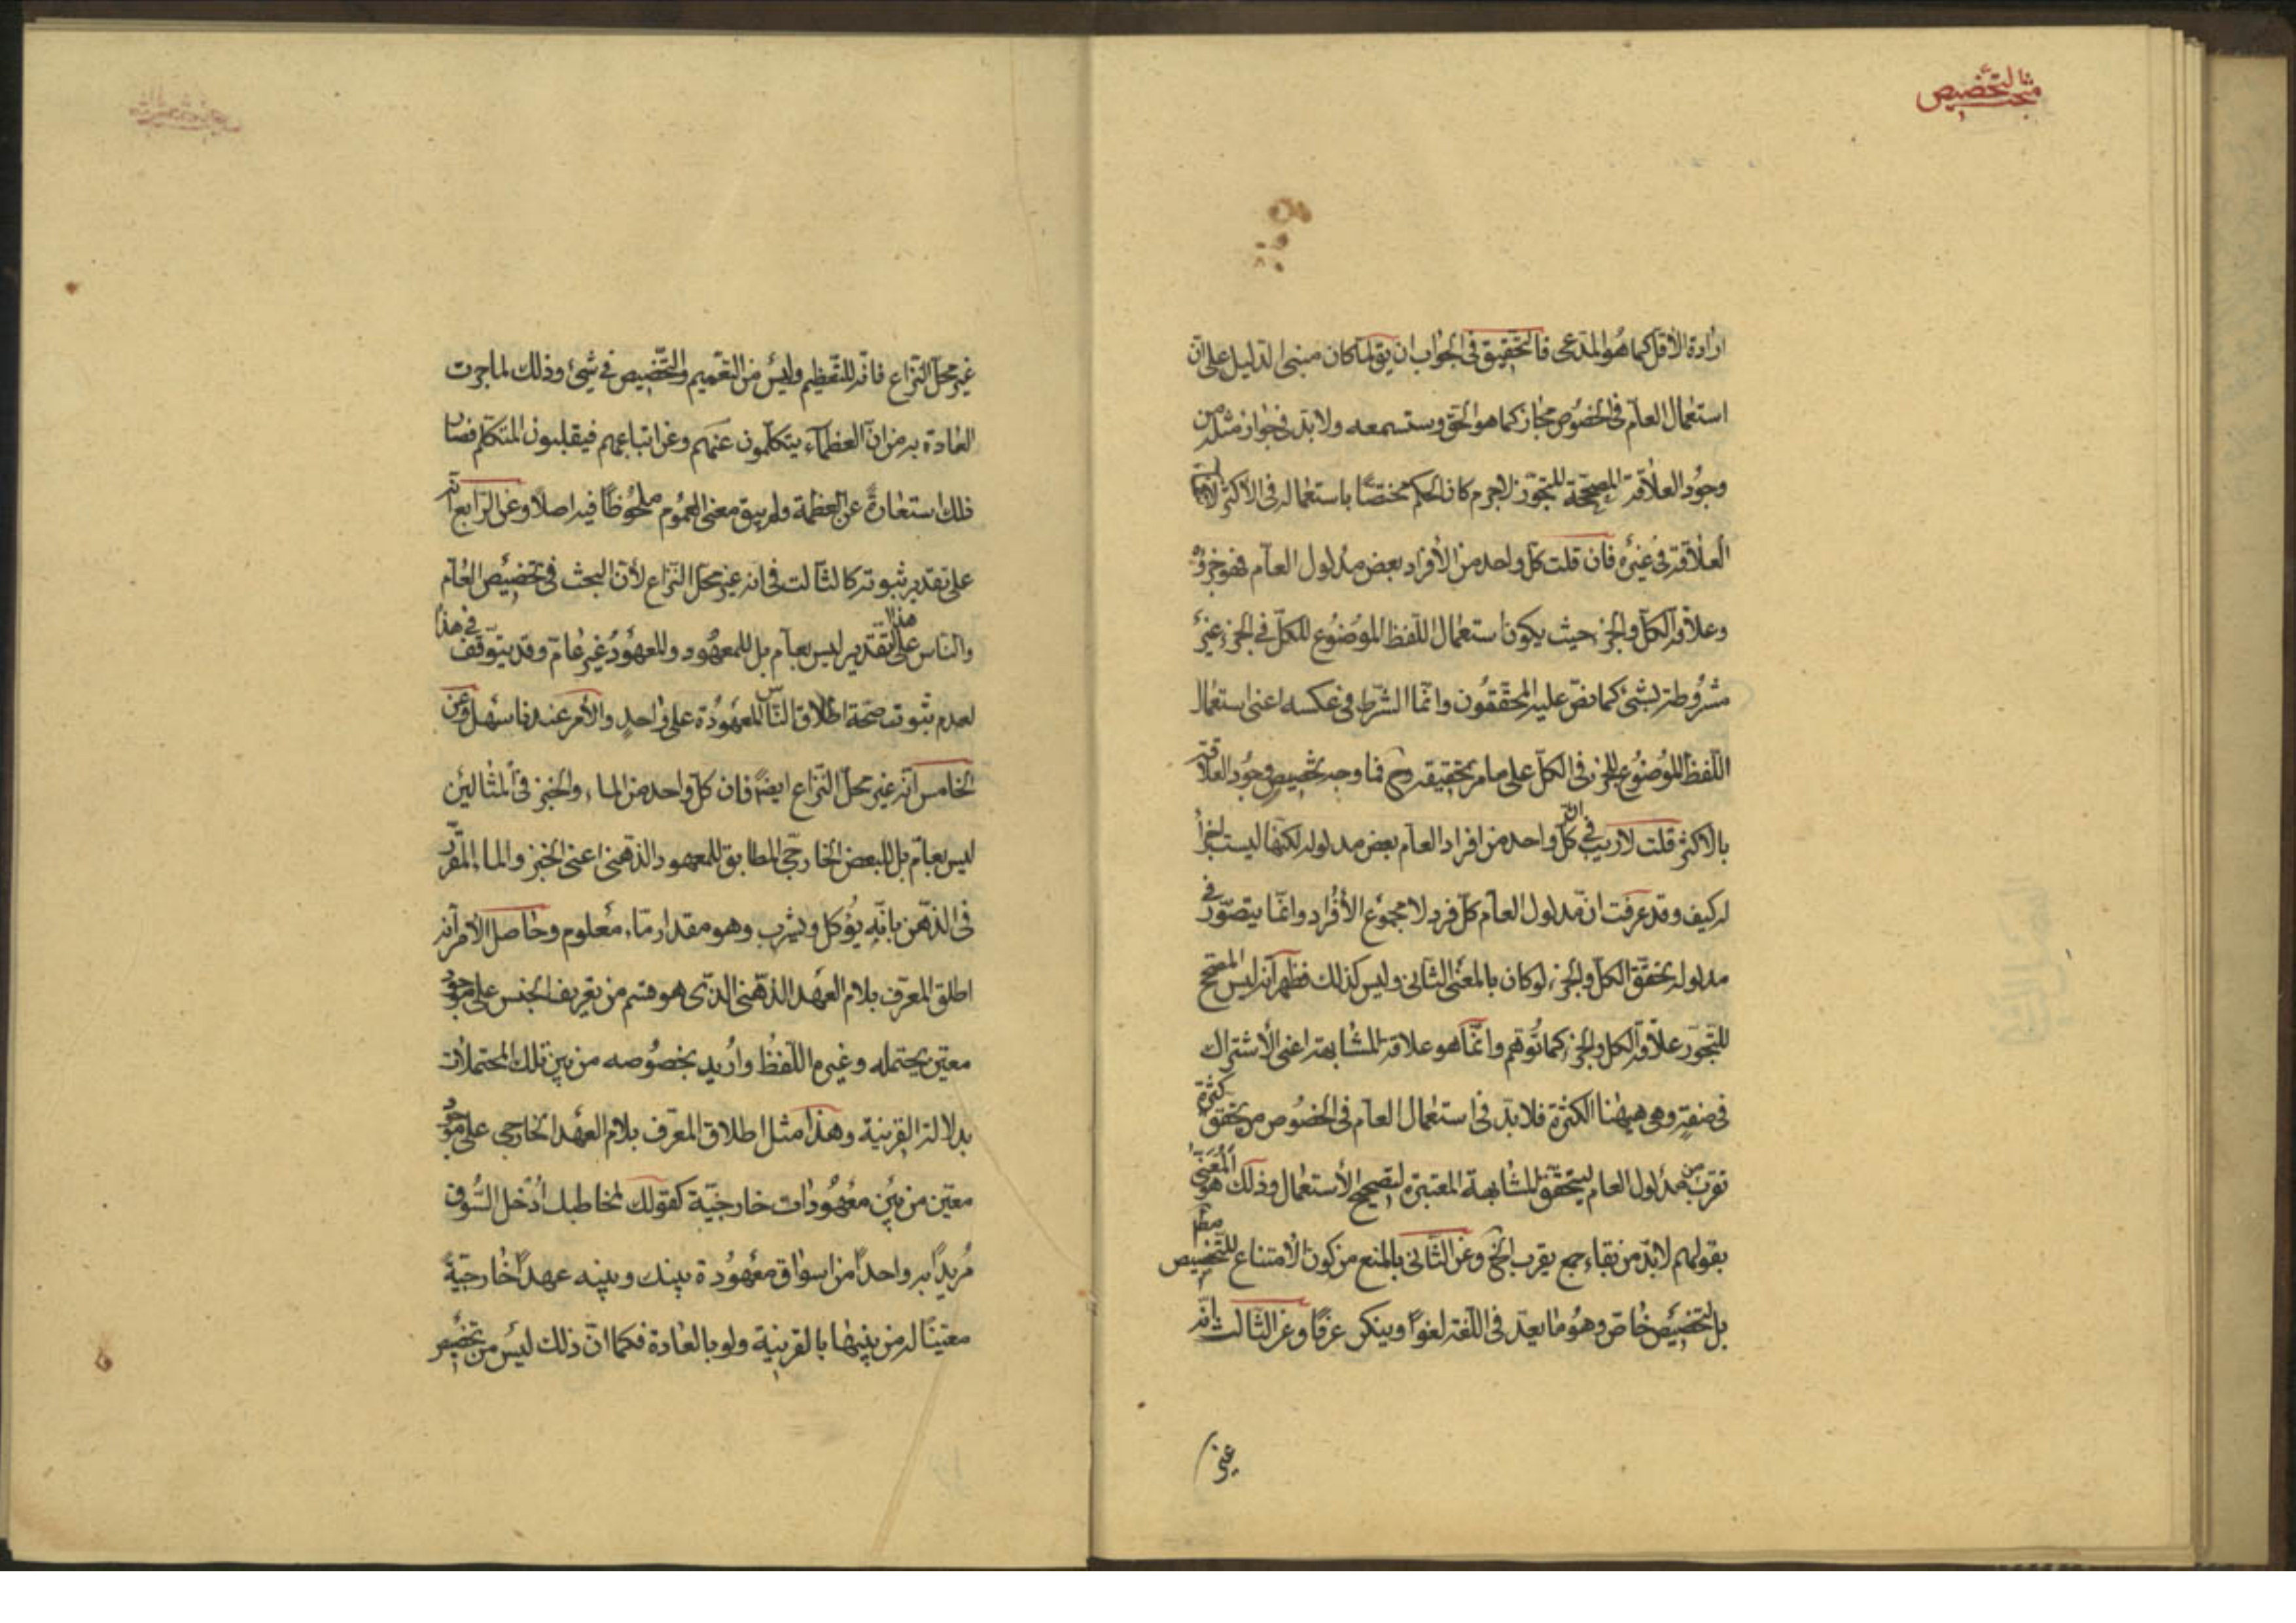 مبحث التخصيص
ارادة الاقل كما هو المدعى فالتحقيق فى الجواب ان يق لما كان مبنى الدليل على ان
استعمال العام فى الخصوص مجاز كما هو الحق وستسمعه ولا بد فى جواز مثله من
وجود العلاقة المصححة للتجوز لاجرم كان الحكم مختصا باستعماله فى الاكثر لانتفاء
العلاقة فى غيره فان قلت كل واحد من الافراد بعض مدلول العام فهو جزؤه
وعلاقة الكل والجزء حيث يكون استعمال اللفظ الموضوع للكل فى الجزء غير
مشروطة بشئ كما نص عليه المحققون وانما الشرط فى عكسه اعنى استعمال
اللفظ الموضوع للجزء فى الكل على ما مر تحقيقه وح فما وجه تخصيص وجود العلاقة
بالاكثر قلت لا ريب فى ان كل واحد من افراد العام بعض مدلوله لكنها ليست اجزأ
له كيف وقد عرفت ان مدلول العام كل فرد لا مجموع الافراد وانما يتصور فى
مدلوله تحقق الكل والجزء لو كان بالمعنى الثانى وليس كذلك فظهر انه ليس المصحح
للتجوز علاقة الكل والجزء كما توهم وانما هو علاقة المشابهة اعنى الاشتراك
فى صفة وهى هيهنا الكثرة فلا بد فى استعمال العام فى الخصوص من تحقق كثرة
تقرب من مدلول العام ليتحقق المشابهة المعتبرة لتصحيح الاستعمال وذلك هو المعنى
بقولهم لا بد من بقاء جمع يقرب الخ وعن الثانى بالمنع من كون الامتناع للتخصيص مط
بل لتخصيص خاص وهو ما يعد فى اللغة لغوا وينكر عرفا وعن الثالث بانه
غير
غير محل النزاع فانه للتعظيم وليس من التعميم والتخصيص فى شئ وذلك لما جرت
العادة به من ان العظماء يتكلمون عنهم وعن اتباعهم فيغلبون المتكلم فصار
ذلك استعارة عن العظمة ولم يبق معنى العموم ملحوظا فيه اصلا وعن الرابع انه
على تقدير ثبوته كالثالث فى انه غير محل النزاع لان البحث فى تخصيص العام
والناس على هذا التقدير ليس بعام بل للمعهود والمعهود غير عام وقد يتوقف فى هذا
لعدم ثبوت صحة اطلاق الناس المعهودة على واحد والامر عندنا سهل وعن
الخامس انه غير محل النزاع ايضا فان كل واحد من الماء والخبز فى المثالين
ليس بعام بل للبعض الخارجى المطابق للمعهود الذهنى اعنى الخبز والماء المقرر
فى الذهن بانه يؤكل ويشرب وهو مقدار ما معلوم وحاصل الامر انه
اطلق المعرف بلام العهد الذهنى الذى هو قسم من تعريف الجنس على موجود
معين يحتمله وغيره اللفظ واريد بخصوصه من بين تلك المحتملات
بدلالة القرينة وهذا مثل اطلاق المعرف بلام العهد الخارجى على موجود
معين من بين معهودات خارجية كقولك لمخاطبك ادخل السوق
مريدا به واحدا من اسواق معهودة بينك وبينه عهدا خارجية
معينا له من بينها بالقرينة ولو بالعادة فكما ان ذلك ليس من تخصيص